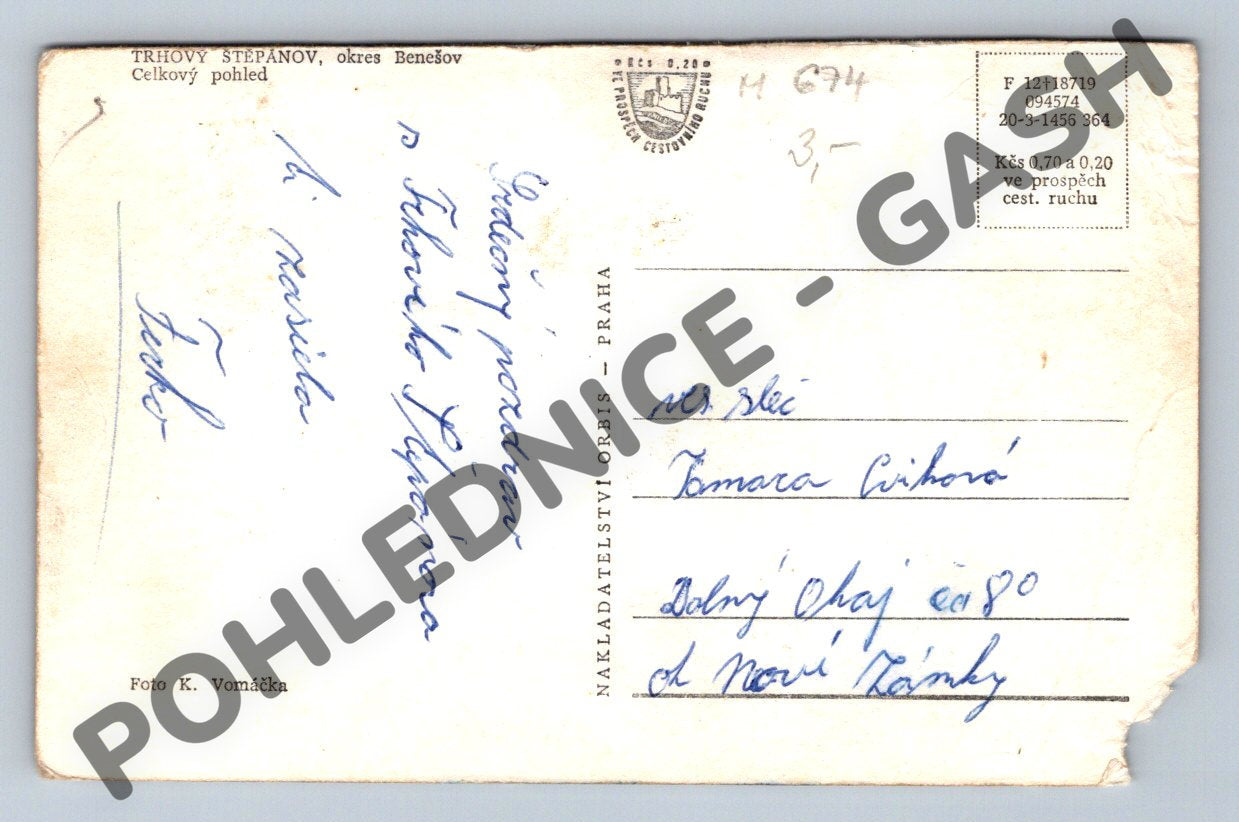 TRHOVÝ ŠTĚPÁNOV, okres Benešov
Celkový pohled
Kčs 0,20
VE PROSPĚCH CESTOVNÍHO RUCHU
M 674
3,-
F 12†18719
094574
20-3-1456 364
Kčs 0,70 a 0,20
ve prospěch
cest. ruchu
Srdečný pozdrav
s Trhového Štěpánova
ti zasiela
Ferko
NAKLADATELSTVÍ ORBIS – PRAHA
slč
Tamara Cvihová
Dolný Ohaj 80
ok Nové Zámky
Foto K. Vomáčka
POHLEDNICE - GASH